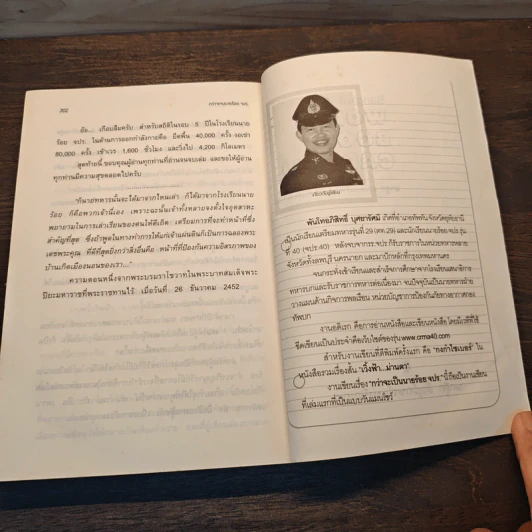 302
กว่าจะมาเป็นนายร้อย จปร.
อ้อ... เกือบลืมครับ สำหรับสถิติในรอบ 5 ปีในโรงเรียนนาย
ร้อย จปร. ในด้านการออกกำลังกายคือ ยึดพื้น 40,000 ครั้ง งอเข่า
80,000 ครั้ง เข้าเวร 1,600 ชั่วโมง และวิ่งไป 4,200 กิโลเมตร
สุดท้ายนี้ ขอบคุณผู้อ่านทุกท่านที่อ่านจนจบเล่ม และขอให้ผู้อ่าน
ทุกท่านมีความสุขตลอดไปครับ
"ก็นายทหารนั้นจะได้มาจากไหนเล่า ก็ได้มาจากโรงเรียนนาย
ร้อย ก็คือพวกเจ้านี่เอง เพราะฉะนั้นเจ้าทั้งหลายจงตั้งใจอุตสาหะ
พยายามในการเล่าเรียนของตนให้ดีเถิด เตรียมการที่จะทำหน้าที่ซึ่ง
สำคัญที่สุด ซึ่งถ้าพูดในทางทำการให้แก่เจ้าแผ่นดินก็เป็นการฉลองพระ
เดชพระคุณ ที่ดีที่สุดยิ่งกว่าสิ่งอื่นคือ หน้าที่ที่ป้องกันความอิสรภาพของ
บ้านเกิดเมืองนอนของเรา..."
ความตอนหนึ่งจากพระบรมราโชวาทในพระบาทสมเด็จพระ
ปิยะมหาราชที่พระราชทานไว้ เมื่อวันที่ 26 ธันวาคม 2452
พันโทอภิสิทธิ์ บุศยารัศมี เกิดที่อำเภอทัพทันจังหวัดอุทัยธานี
เป็นนักเรียนเตรียมทหารรุ่นที่ 29 (ตท.29) และนักเรียนนายร้อย จปร.รุ่น
ที่ 40 (จปร.40) หลังจบจากรร.จปร ก็รับราชการในหน่วยทหารหลาย
จังหวัดทั้งลพบุรี นครนายก และมาปักหลักที่กรุงเทพมหานคร
จนกระทั่งเข้าเรียนและสำเร็จการศึกษาจากโรงเรียนเสนาธิการ
ทหารบกและรับราชการทหารต่อเนื่องมา จนปัจจุบันเป็นนายทหารฝ่าย
วางแผนด้านกิจการพลเรือน หน่วยบัญชาการป้องกันภัยทางอากาศกอง
ทัพบก
งานอดิเรก คือการอ่านหนังสือและเขียนหนังสือ โดยมีเวทีที่ใช้
ขีดเขียนเป็นประจำคือเว็บไซต์ของรุ่น www.crma40.com
สำหรับงานเขียนที่ตีพิมพ์ครั้งแรก คือ "กงกำไซเบอร์" ใน
หนังสือรวมเรื่องสั้น "เวิ้งฟ้า...ม่านดา"
งานเขียนเรื่อง "กว่าจะเป็นนายร้อย จปร." นี้ถือเป็นงานเขียน
ที่เล่มแรกที่เป็นแบบวันแมนโชว์